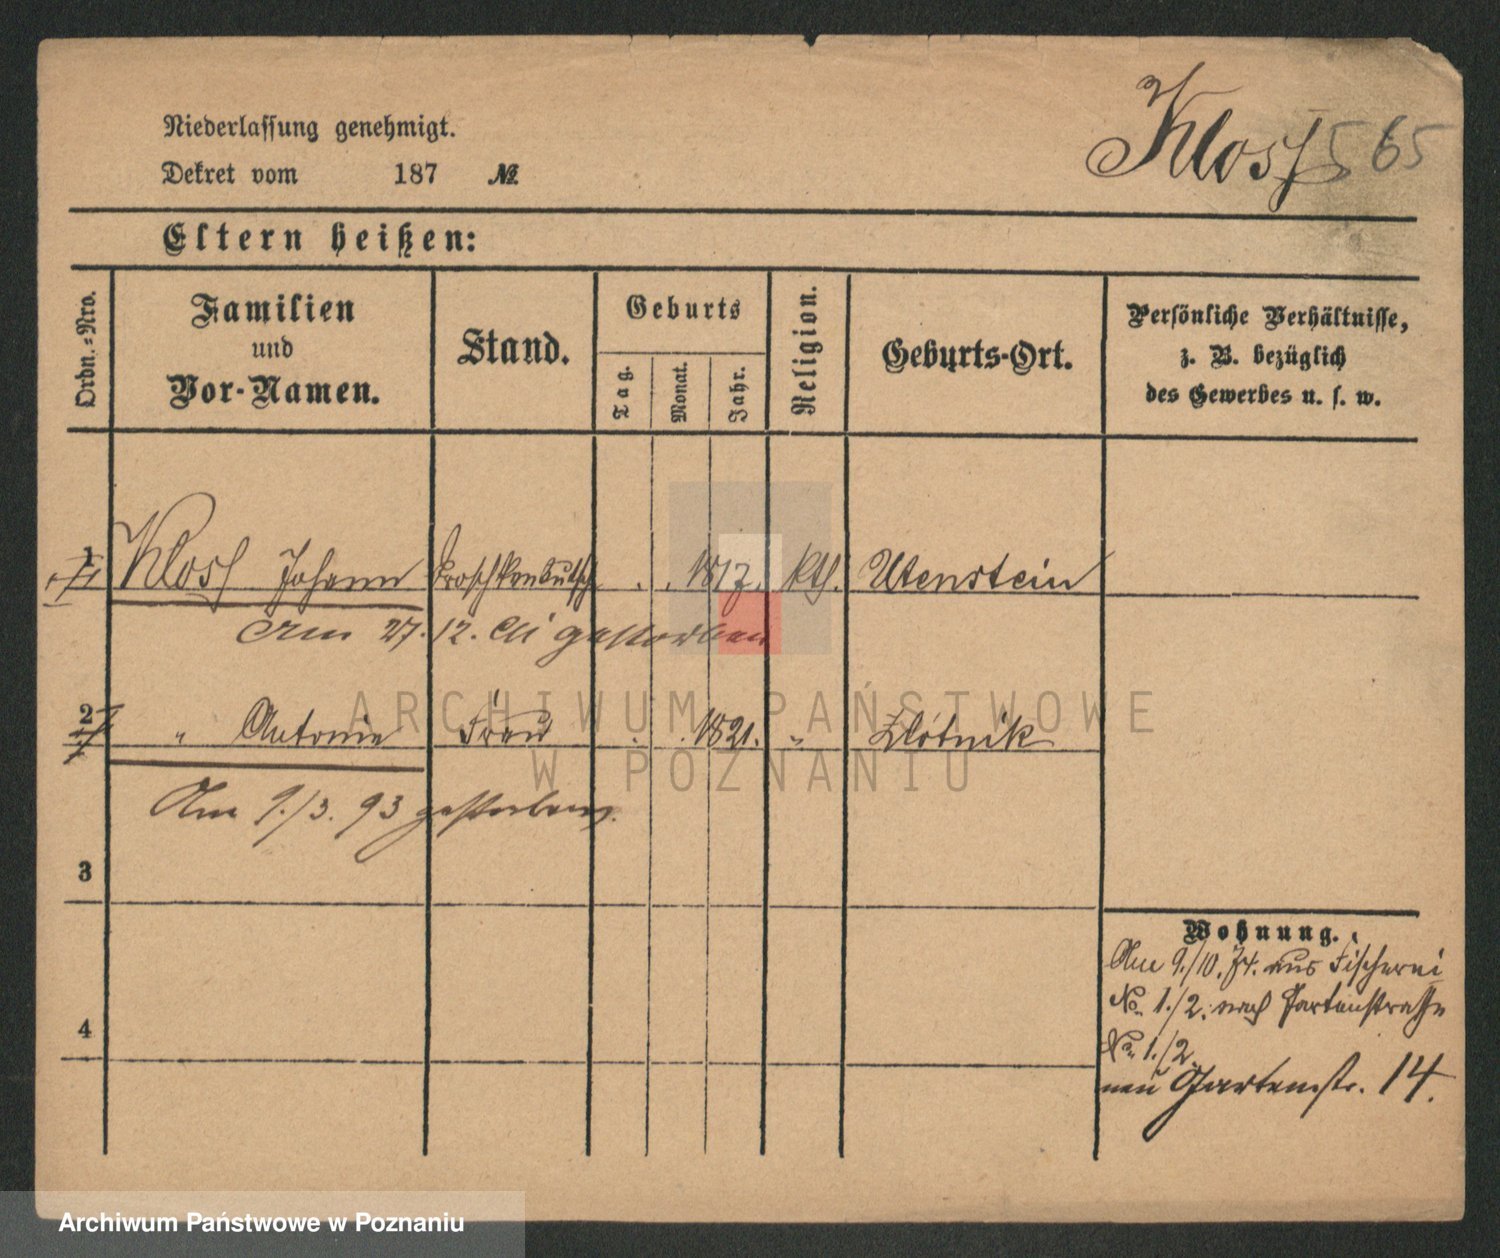 Niederlassung genehmigt.
Dekret vom 187 №
Klos 565
Eltern heißen:
Ordn.-Nro.
Familien und Vor-Namen.
Stand.
Geburts
Tag.
Monat.
Jahr.
Religion.
Geburts-Ort.
Persönliche Verhältnisse,
z. B. bezüglich
des Gewerbes u. s. w.
1 Klos Johann Droschkenkutsch 1817. kth. Utenstein
Am 27. 12. gestorben
2 " Antonie Frau 1821. " Zlotnik
Am 9./3. 93 gestorben.
3
4
Wohnung.
Am 9./10. 74. aus Fischerei
No. 1./2. nach Gartenstraße
No. 1./2.
neu Gartenstr. 14.
ARCHIWUM PAŃSTWOWE
W POZNANIU
Archiwum Państwowe w Poznaniu